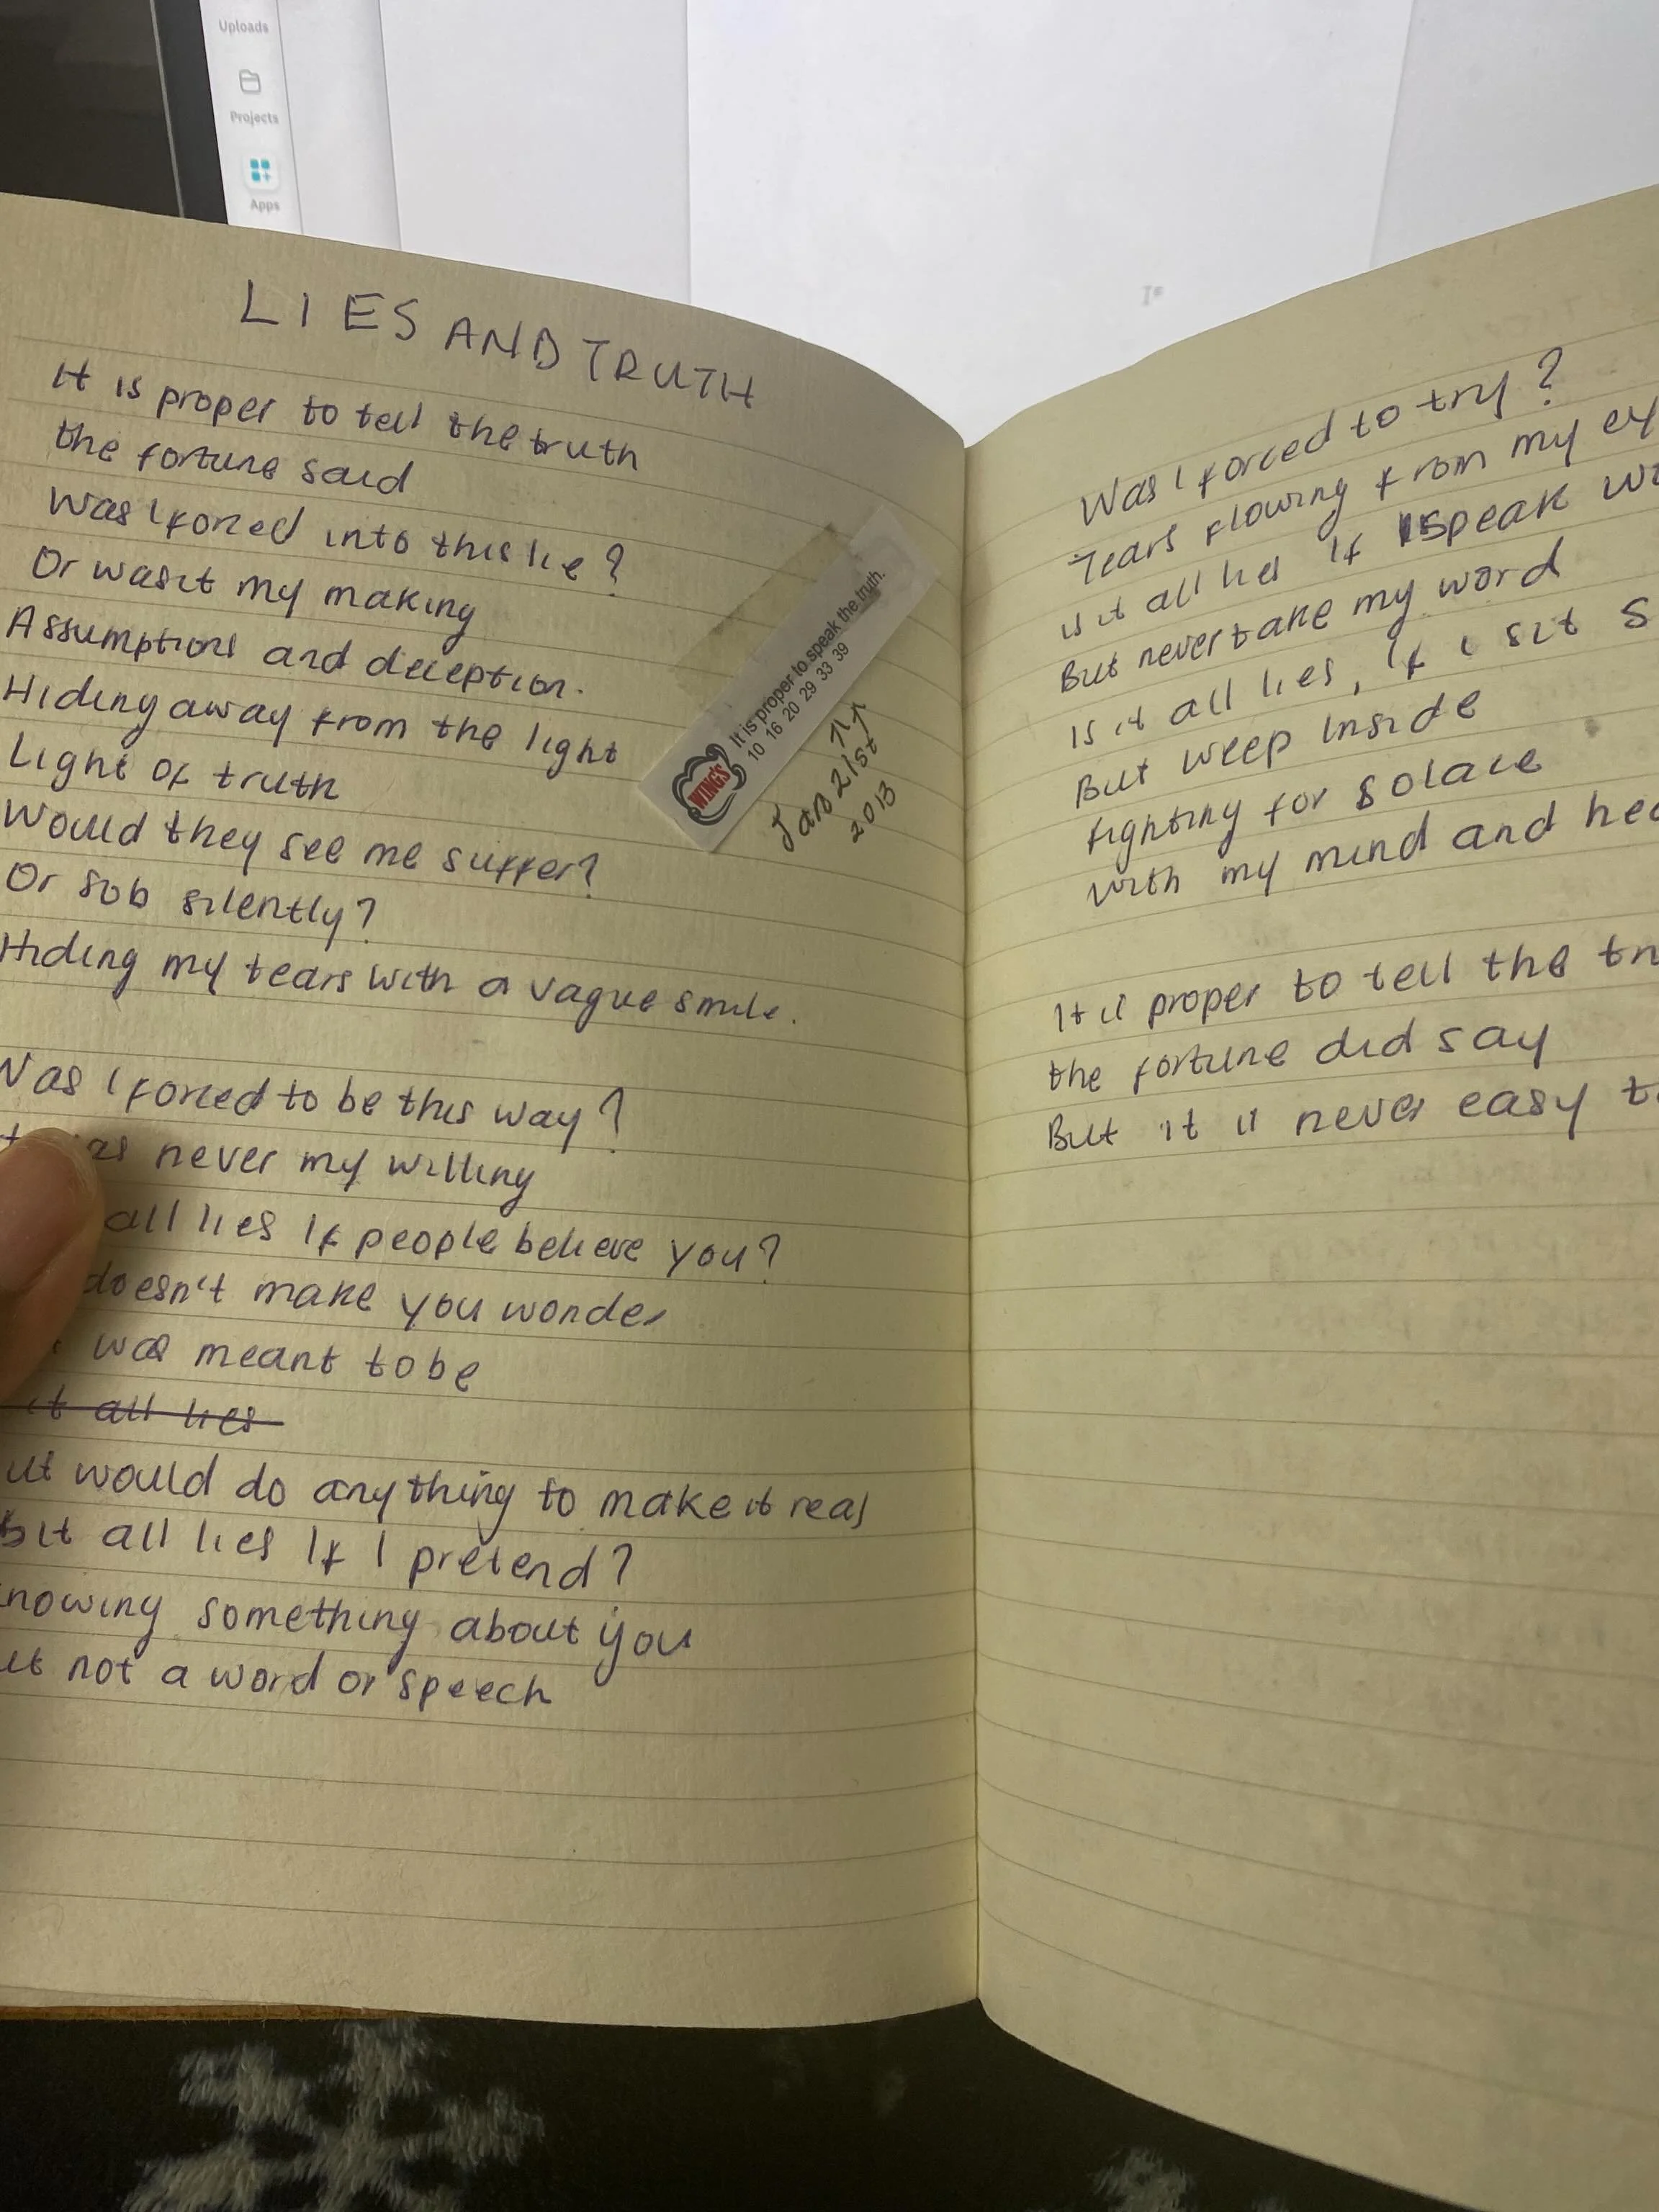 Uploads
Projects
Apps
LIES AND TRUTH
It is proper to tell the truth
the fortune said
Was I forced into this lie?
Or was it my making
Assumptions and deception.
Hiding away from the light
Light of truth
Would they see me suffer?
Or sob silently?
Hiding my tears with a vague smile.
Was I forced to be this way?
never my willing
all lies If people believe you?
doesn't make you wonder
was meant to be
it all lies
would do anything to make it real
it all lies If I pretend?
knowing something about you
not a word or speech
WING'S
It is proper to speak the truth.
10 16 20 29 33 39
Jan 21st
2013
Was I forced to try?
Tears flowing from my
is it all lies If I speak
But never take my word
Is it all lies, If I sit
But weep inside
fighting for solace
with my mind and
It is proper to tell the
the fortune did say
But it is never easy